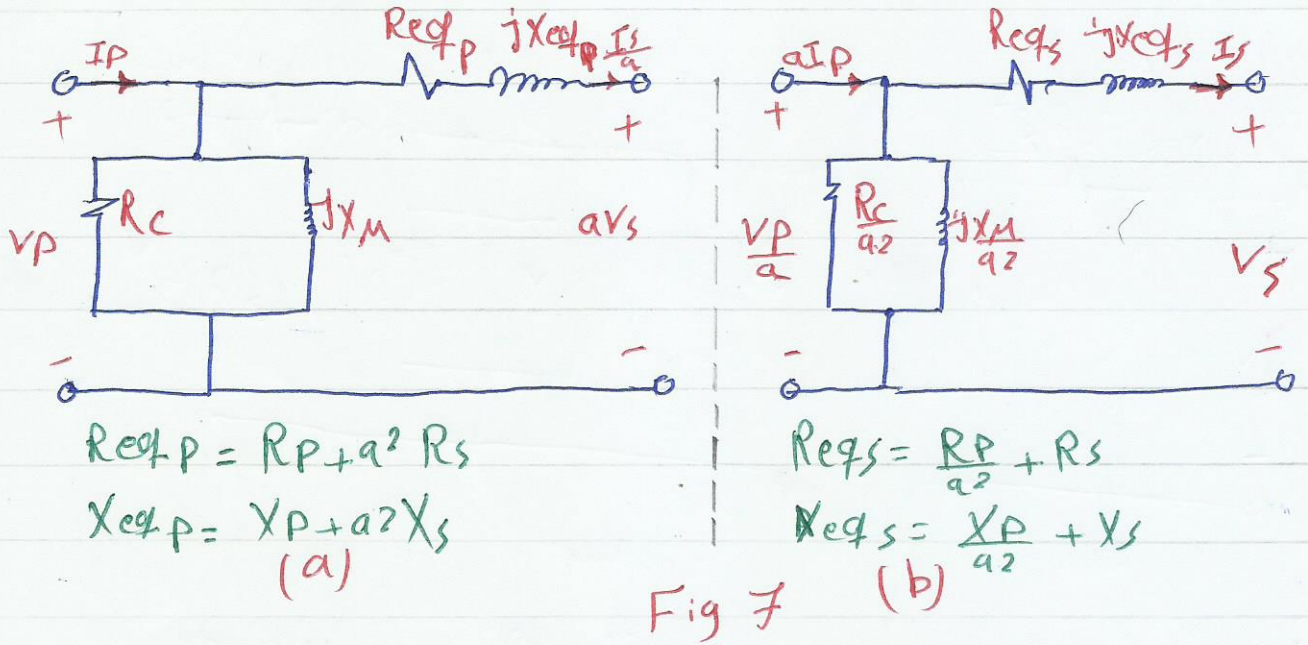 Reqp jXeqp Is/a
Ip
+ +
Vp Rc jXM aVs
- -
Reqp = Rp + a² Rs
Xeqp = Xp + a² Xs
(a)
Reqs jXeqs Is
aIp
+ +
Vp/a Rc/a² jXM/a² Vs
- -
Reqs = Rp/a² + Rs
Xeqs = Xp/a² + Xs
(b)
Fig 7